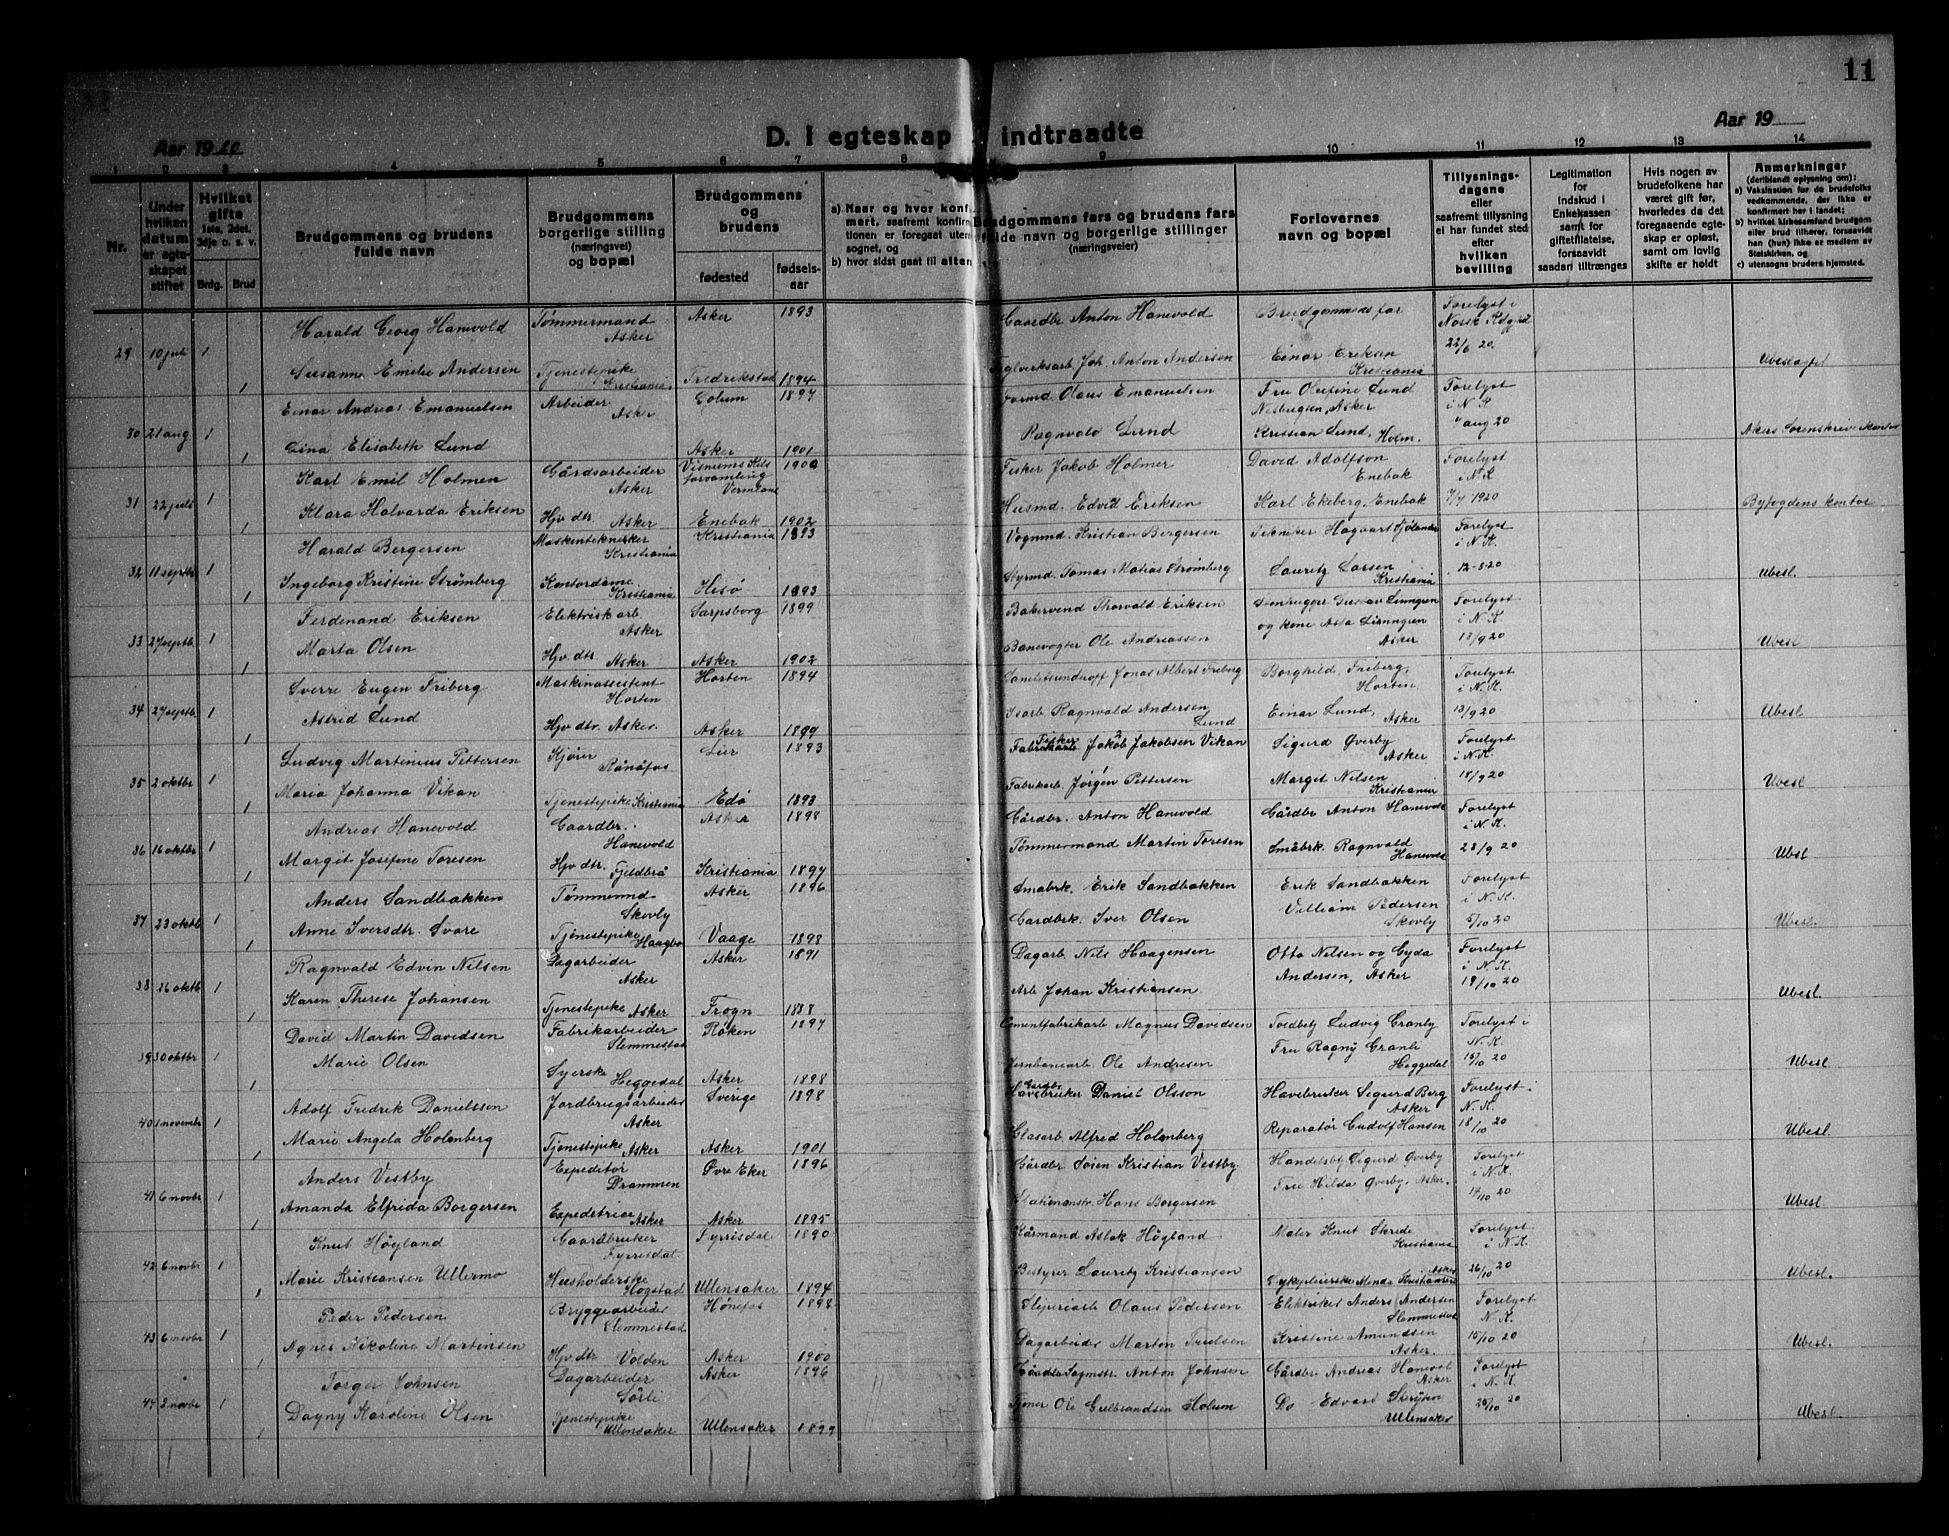 11
Aar 1920
D. I egteskap indtraadte
Aar 19
1 2 3 4 5 6 7 8 9 10 11 12 13 14
Nr.
Under hvilken datum er egteskapet stiftet
Hvilket gifte 1ste, 2det, 3dje o. s. v.
Brdg. Brud
Brudgommens og brudens fulde navn
Brudgommens borgerlige stilling (næringsvei) og bopæl
Brudgommens og brudens
fødested
fødselsaar
a) Naar og hvor konfirmert, saafremt konfirmationen er foregaat uten sognet, og
b) hvor sidst gaat til alters
Brudgommens fars og brudens fars fulde navn og borgerlige stillinger (næringsveier)
Forlovernes navn og bopæl
Tillysningsdagene eller saafremt tillysning ei har fundet sted efter hvilken bevilling
Legitimation for Indskud i Enkekassen samt for giftetilfatelse, forsaavidt saadan tiltrænges
Hvis nogen av brudefolkene har været gift før, hvorledes da det foregaaende egteskap er opløst, samt om lovlig skifte er holdt
Anmerkninger (deriblandt oplysning om):
a) Vaksinstion for de brudefolks vedkommende, der ikke er konfirmert her i landet;
b) hvilket kirkesamfund brudgom eller brud tilhører, forsaavidt han (hun) ikke er medlem av Statskirken, og
c) utensogns bruders hjemsted.
29 10 juli 1 Harald Georg Hanevold Tømmermand Asker Asker 1893 Gaardbr Anton Hanevold Brudgommens far Forelyst i Norsk Kdgjød 22/6 20.
1 Susanne Emilie Andersen Tjenestepike Kristiania Fredrikstad 1894 Teglverksarb. Joh. Anton Andersen Einar Eriksen Kristiania Ubeslegtet
30 21 aug 1 Einar Andreas Emanuelsen Arbeider Asker Golum 1897 Formd Olaus Emanuelsen Fru Olufine Lund Nesbugsen, Asker Forelyst i N.K
1 Lina Elisabeth Lund Asker 1901 Ragnvald Lund Kristian Lund, Holm. aug 20 Akers Sorenskriv. kontor
31 22 juli 1 Karl Emil Holmen Gårdsarbeider Asker Visnums Kils forsamling Vermland 1900 Fisker Jakob Holmer David Adolfson Enebak Forelyst i N.K
1 Klara Halvarda Eriksen Hjv dtr Asker Enebak 1902 Husmd. Edvid Eriksen Karl Ekeberg, Enebak 7/7 1920 Byfogdens kontor
32 11 septb 1 Harald Bergersen Maskentekniker Kristiania Kristiania 1893 Vognmd. Kristian Bergersen Tekniker Hagaart Sjølander Forelyst i N.K.
1 Ingeborg Kristine Strømberg Kontordame Kristiania Hisø 1893 Styrmd. Tomas Matias Strømberg Lauritz Larsen Kristiania 12-8 20 Ubesl.
33 27 septb. 1 Ferdenand Eriksen Elektrisk arb. Asker Sarpsborg 1899 Bakersvend Thorvald Eriksen Stenhugger Gustav Linngren Forelyst i N.K
1 Marta Olsen Hjv dtr Asker Asker 1902 Banevogter Ole Andreassen og kone Asta Linngren Asker 13/9 20 Ubesl
34 27 septb. 1 Sverre Eugen Friberg Maskinassistent Horten Horten 1894 Jonas Albert Friberg Borghild Friberg, Horten Forelyst i N.K.
1 Astrid Lund Hjv dtr. Asker. Asker 1899 Isarb. Ragnvald Andersen Lund Einar Lund, Asker 13/9 20 Ubesl
35 2 oktbr 1 Ludvig Martinius Pettersen Kjører Rånåfos Lier 1893 Fabrikarb. Fisker Jakob Jakobsen Vikan Sigurd Øverby Asker Forelyst i N.K
1 Maria Johanna Vikan Tjenestepike Kristiania Edø 1893 Fabrikarb. Jörgen Pettersen Margit Nilsen Kristiania 18/9 20 Ubesl
36 16 oktbr 1 Andreas Hanevold Gaardbr. Hanevold Asker 1898 Gårdbr. Anton Hanevold Gårdbr Anton Hanevold Forelyst i N.K.
1 Margit Josefine Toresen Hjv dtr. Fjeldbrå Kristiania 1897 Tømmermand Martin Toresen Småbrk. Ragnvald Hanevold 28/9 20 Ubsl
37 23 oktb 1 Anders Sandbakken Tømmermd Skovly Asker 1896 Småbrk. Erik Sandbakken Erik Sandbakken Forelyst i N.K.
1 Anne Iversdtr. Svare Tjenestepike Haagbo Vaage 1898 Gardbrk. Iver Olsen Villiam Pedersen Skovly 5/10 20 Ubesl.
38 26 oktb 1 Ragnvald Edvin Nilsen Dagarbeider Asker Asker 1891 Dagarb. Nils Haagensen Otto Nilsen og Gyda Forelyst i N.K.
1 Karen Therese Johansen Tjenestepike Asker Frogn 1888 Arb Johan Kristiansen Andersen, Asker 19/10 20 Ubesl.
39 30 oktbr 1 David Martin Davidsen Fabrikarbeider Slemmestad Røken 1897 Cementfabrikarb Magnus Davidsen Toldbetj Ludvig Granly Forelyst i N.K.
1 Marie Olsen Syerske Heggedal Asker 1898 Jernbanearb. Ole Andresen Fru Ragny Granli Heggedal 15/10 20 Ubesl
40 1 novembr 1 Adolf Fredrik Danielssen Jordbrugsarbeider Asker Sverige 1898 Havebruker Gårdbr. Daniel Olsson Havebruker Sigurd Berg Asker Forelyst i N.K.
1 Marie Angela Holenberg Tjenestepike Asker Asker 1901 Glasarb. Alfred Holenberg Reparatør Gudolf Hansen 18/10 20 Ubesl.
41 6 novbr 1 Anders Vestby Expeditør Drammen Øvre Eker 1896 Gårdbr Søren Kristian Vestby Handelsbj Sigurd Øverby Forelyst i N.K.
1 Amanda Elfrida Borgersen Expeditrice Asker Asker 1895 Stationsmstr. Hans Borgersen Fru Hilda Øverby. Asker. 14/10 20 Ubesl.
42 6 novbr 1 Knut Høyland Gaardbruker Fyrrisdal Fyrrisdal 1890 Kårmand Aslak Høgland Maler Knut Skrede Kristiania Forelyst i N.K.
1 Marie Kristiansen Ullermo Husholderske Hogstad Ullensaker 1894 Bestyrer Lauritz Kristiansen Sykepleierske Menda Kristiansen Asker 26/10 20 Ubesl.
43 6 novbr 1 Peder Pedersen Bryggearbeider Slemmestad Hønefos 1898 Sliperiarb Olaus Pedersen Elektriker Anders Andersen Slemmestad Forelyst N.K.
1 Agnes Nikoline Martinsen Hjv. dtr Volden Asker 1900 Dagarbeider Marton Truelsen Kristine Amundsen Asker. 15/10 20 Ubesl.
44 2 novbr 1 Torger Johnsen Dagarbeider Sörli Asker 1896 Anton Johnsen Gårdbr Andreas Hanevol Asker Forelyst i N.K
1 Dagny Karoline Olsen Tjenestepike Ullensaker Ullensaker 1899 Tjener Ole Gulbrandsen Holum Do Edvard Strøjen Ullensaker 20/10 20 Ubesl.